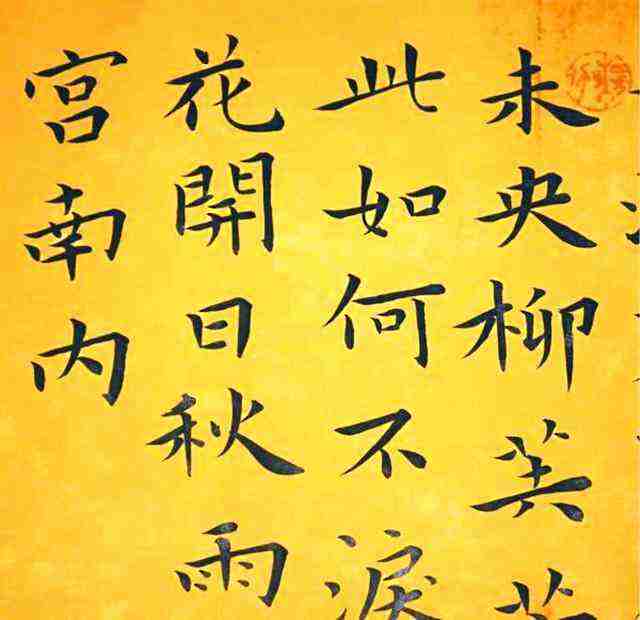 未央柳芙
此如何不淚
花開日秋雨
宮南内